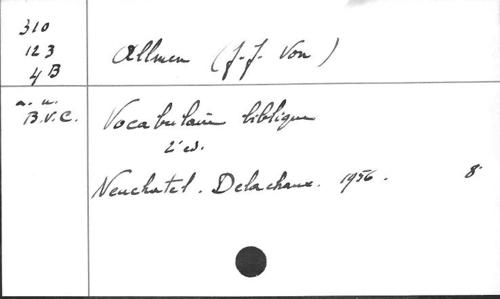 310
123
4B
Allmen (J.-J. Von)
a. u.
B.V.C.
Vocabulaire biblique
2e ed.
Neuchatel. Delachaux. 1956. 8°